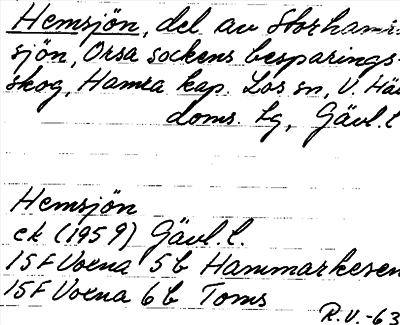 Hemsjön, del av Storhamra-
sjön, Orsa sockens besparings-
skog, Hamra kap. Los sn, V. Häl
doms. lg, Gävl. l
Hemsjön
ek (1959) Gävl. l.
15F Voxna 5b Hammarkesen
15F Voxna 6b Toms
R.V.-63